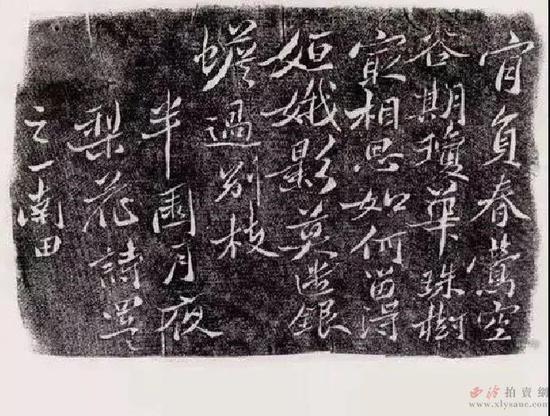 肎負春鶯空
谷期瓊華珠樹
冣相思如何留得
姮娥影莫遣銀
蟾過別枝
半園月夜
梨花詩
之一南田
西泠拍賣網
www.xlysauc.com